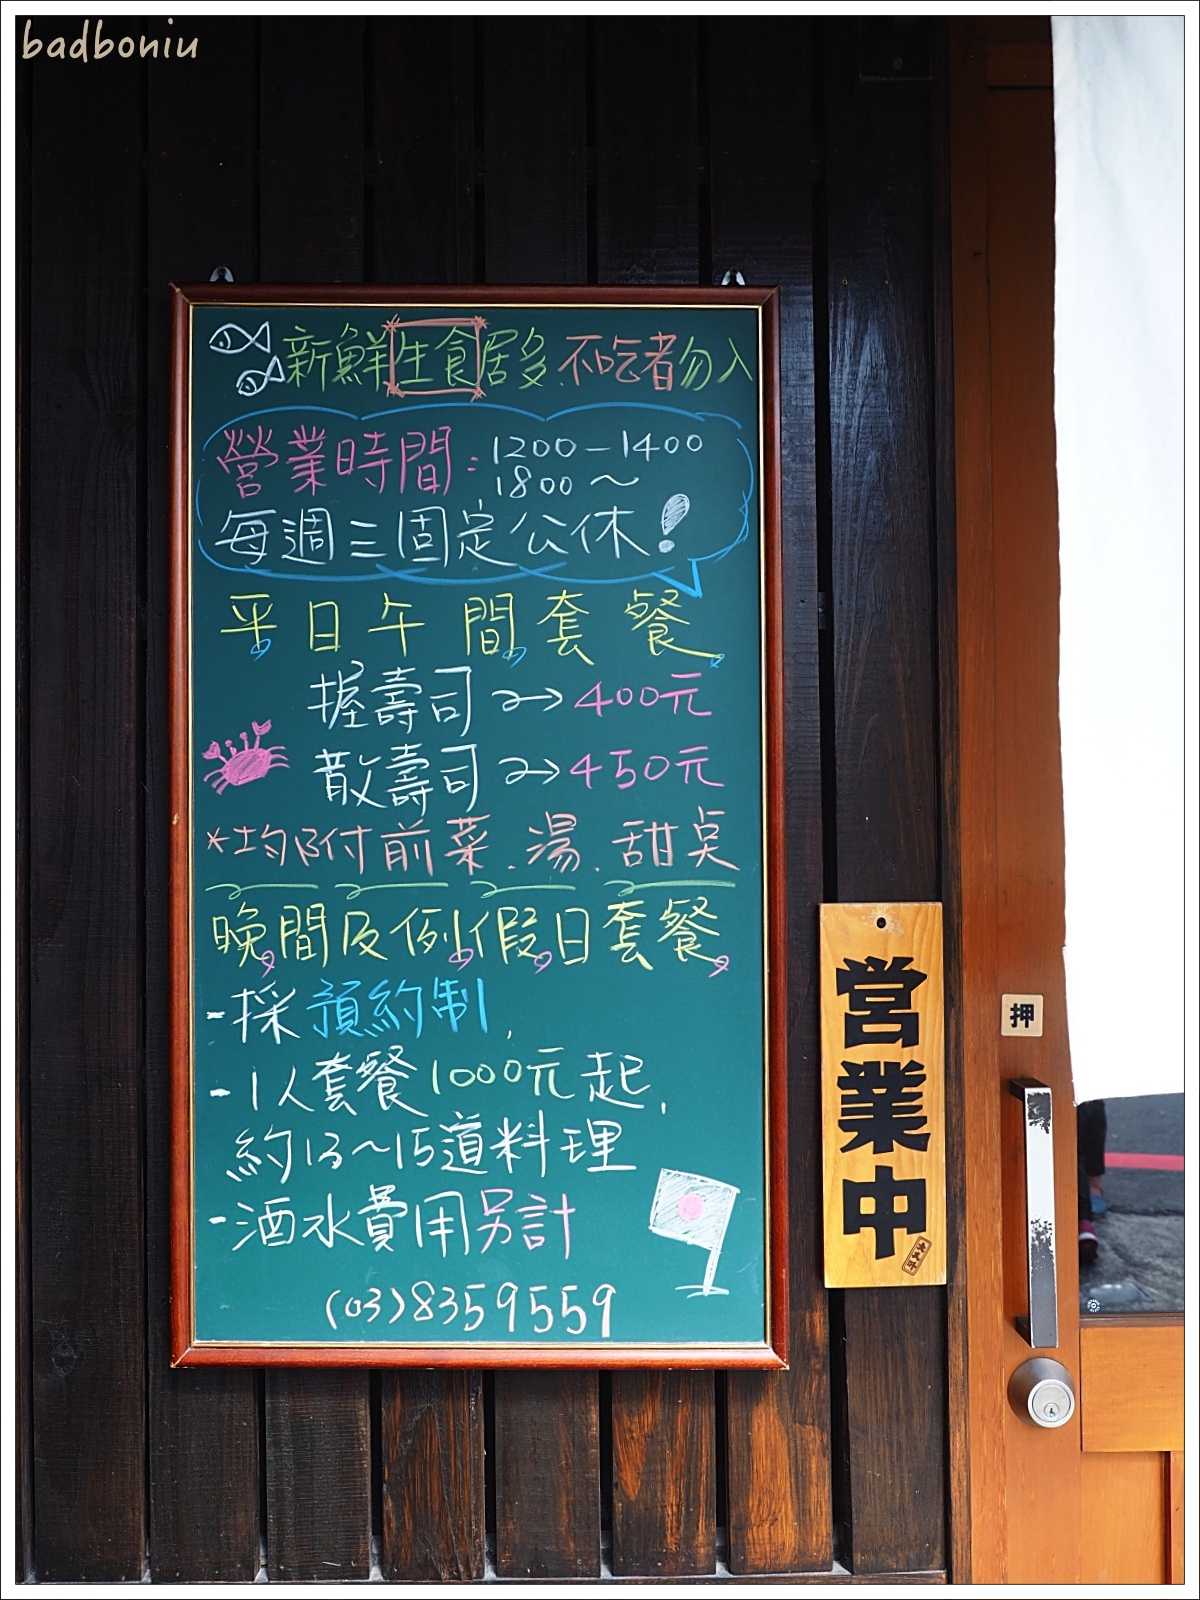 badboniu
新鮮生食居多.不吃者勿入
營業時間:1200-1400
1800～
每週三固定公休!
平日午間套餐
握壽司→400元
散壽司→450元
*均附前菜.湯.甜点
晚間及例假日套餐
-採預約制,
-1人套餐1000元起,
約13～15道料理
-酒水費用另計
(03)8359559
営業中
押